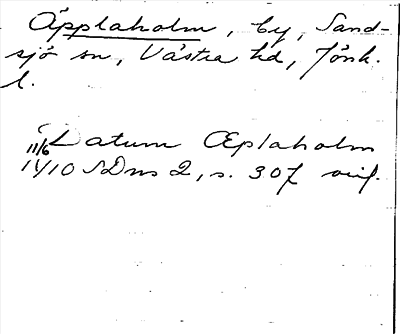 Äpplaholm, by, Sand-
sjö sn, Västra hd, Jönk.
l.
Datum Æplaholm
11/6
1410 SDns 2, s. 307 orig.